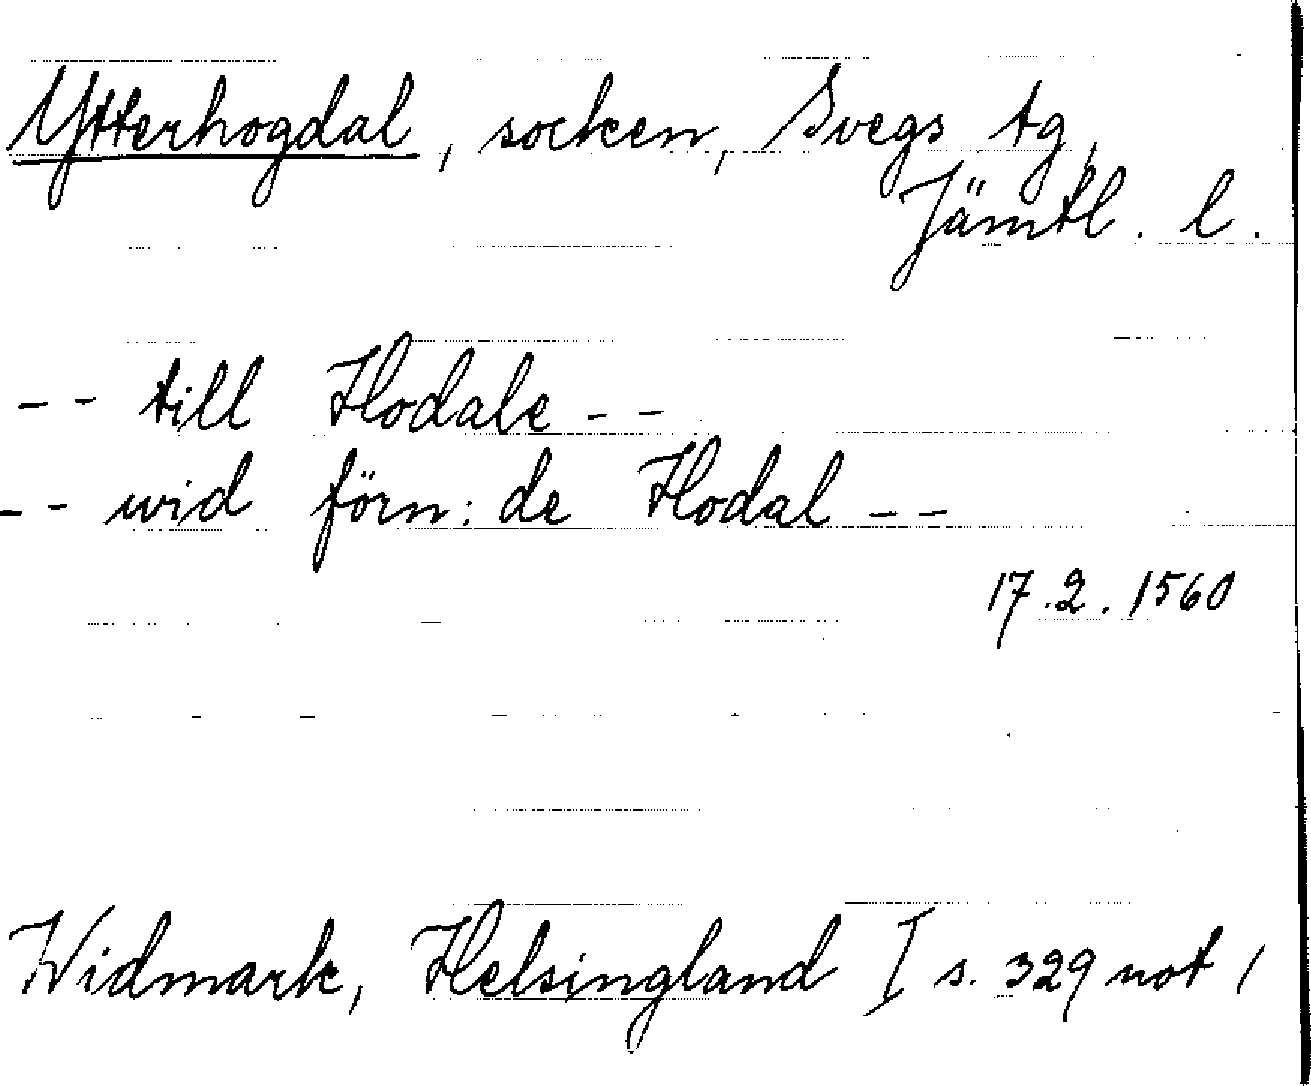 Ytterhogdal, socken, Svegs tg,
Jämtl. l.
-- till Hodale --
-- wid förn: de Hodal --
17.2.1560
Widmark, Helsingland I s. 329 not 1